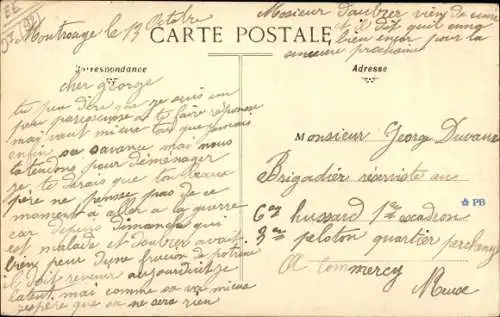 EE
DT/92
Montrouge le 13 Octobre
Monsieur Daubier vien de venir
et il dit quil aura
bien encor pour la
semaine prochaine
CARTE POSTALE
Correspondance
Adresse
cher George
tu peu dire que je suis un
peu paresseuse a te faire réponse
mai vaut mieux tar que jamais
enfin sa avance mai nous
tatendons pour déménager
je te dirais que ton beaux
père ne pense pas de ce
moment a aller a la guerre
car depuis dimanche qui
est malade et Daubier avait
bien peur dune fluxion de poitrine
il doit revenir aujourduit je
latent mai comme sa va mieux
jespère que sa ne sera rien
Monsieur George Duvaux
Brigadier réserviste au
6em hussard 1er escadron
3em peloton quartier
A Commercy
Meuse
PB